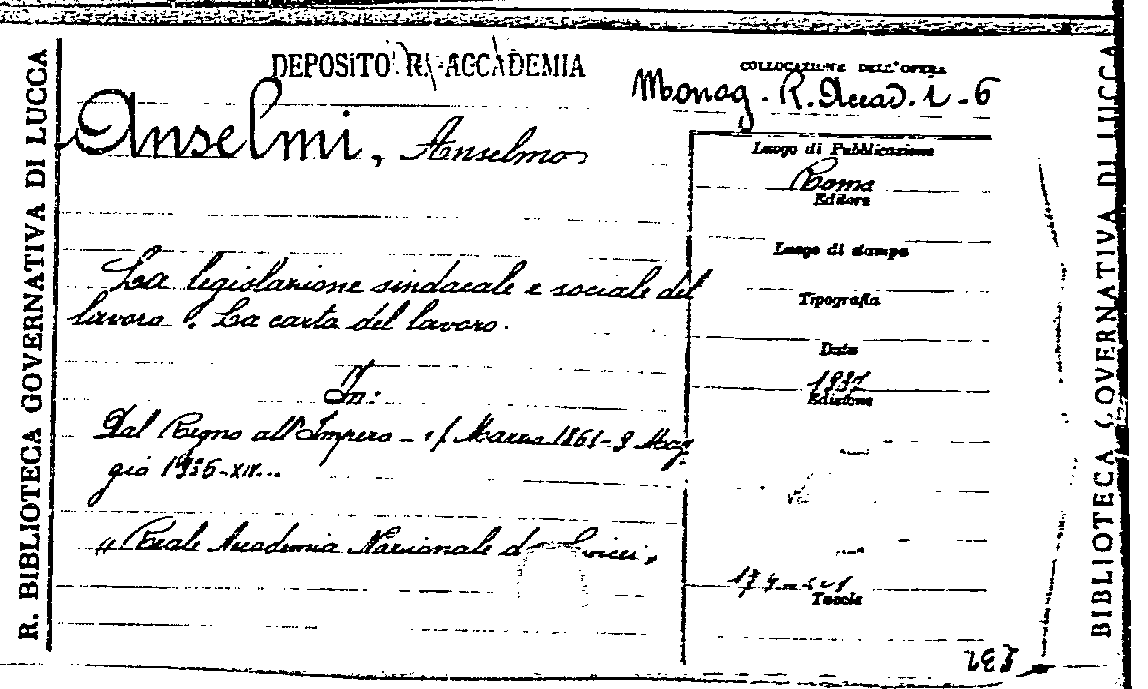 R. BIBLIOTECA GOVERNATIVA DI LUCCA
DEPOSITO R. ACCADEMIA
COLLOCAZIONE DELL'OPERA
Monog. R. Accad. i - 6
Anselmi, Anselmo
La legislazione sindacale e sociale del
lavoro. La carta del lavoro.
In:
Dal Regno all'Impero - 17 Marzo 1861 - 9 Mag
gio 1936-XIV...
"Reale Accademia Nazionale dei Lincei"
Luogo di Pubblicazione
Roma
Editore
Luogo di stampa
Tipografia
Data
1937
Edizione
Tuccia
BIBLIOTECA GOVERNATIVA DI LUCCA